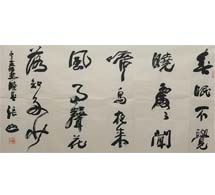 春眠不覺
曉處々聞
啼鳥夜来
風雨聲花
落知多少